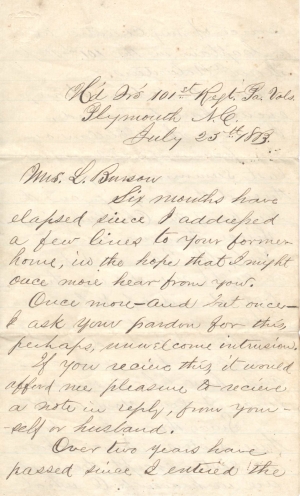 Hd Qrs 101st Regt. Pa. Vols.
Plymouth N.C.
July 25th 1863.
Mrs. L. Benson
Six months have
elapsed since I addressed
a few lines to your former
home, in the hope that I might
once more hear from you.
Once more—and but once—
I ask your pardon for this,
perhaps, unwelcome intrusion.
If you recieve this, it would
afford me pleasure to recieve
a note in reply, from your-
-self or husband.
Over two years have
passed since I entered the